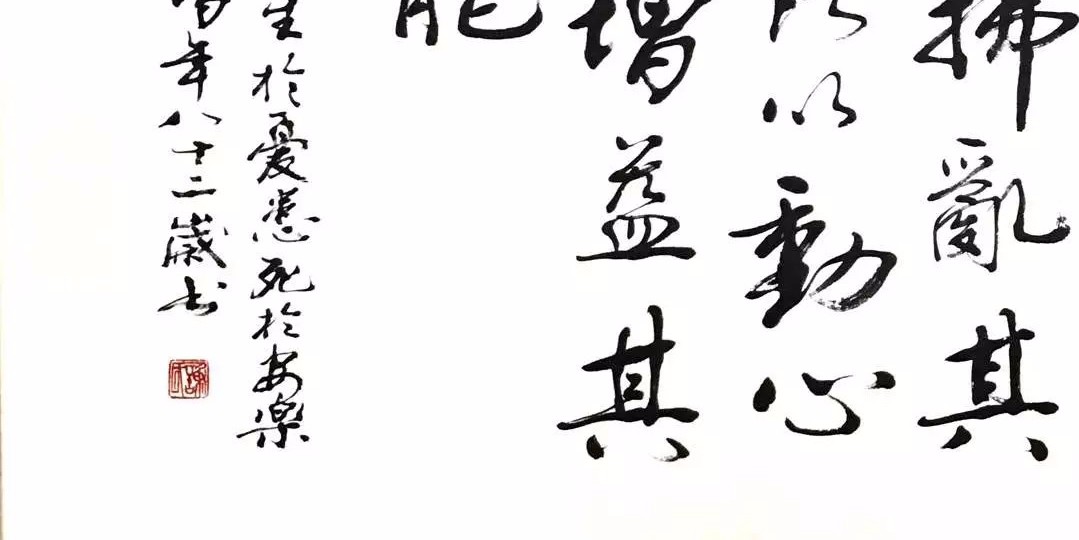 拂亂其
所以動心
增益其
能
生於憂患死於安樂
年八十二歲書